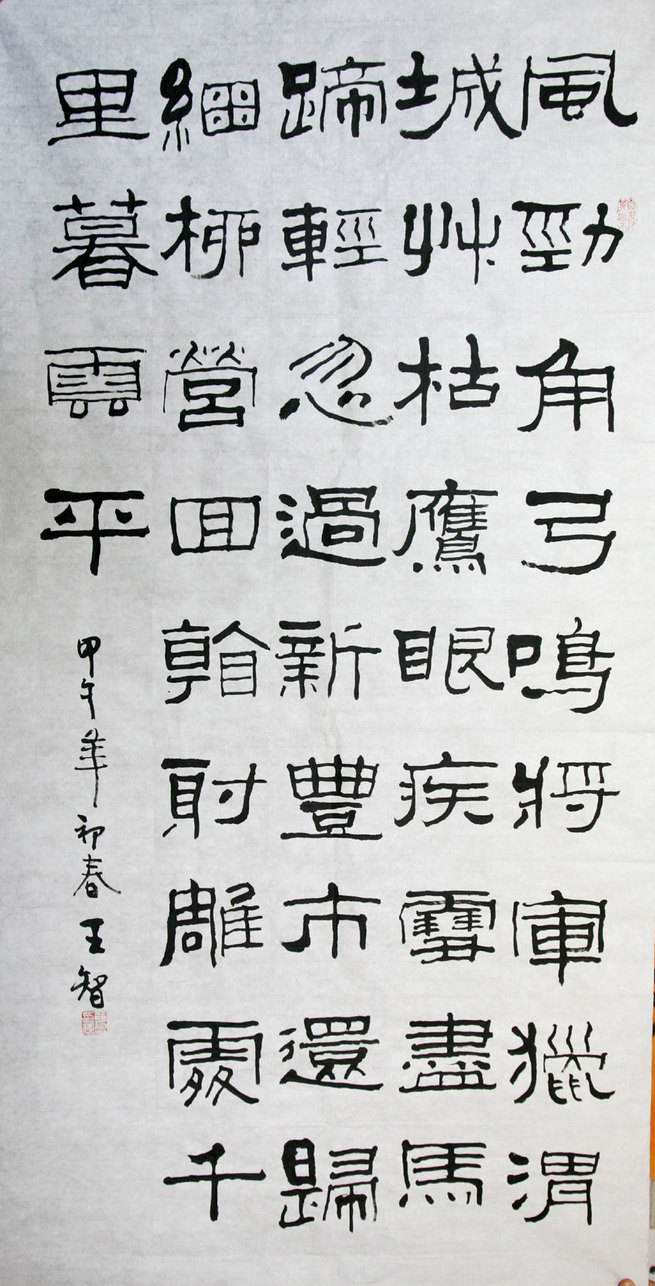 風勁角弓鳴將軍獵渭
城艸枯鷹眼疾雪盡馬
蹄輕忽過新豐市還歸
細柳營回翰射雕處千
里暮雲平
甲午年初春王智